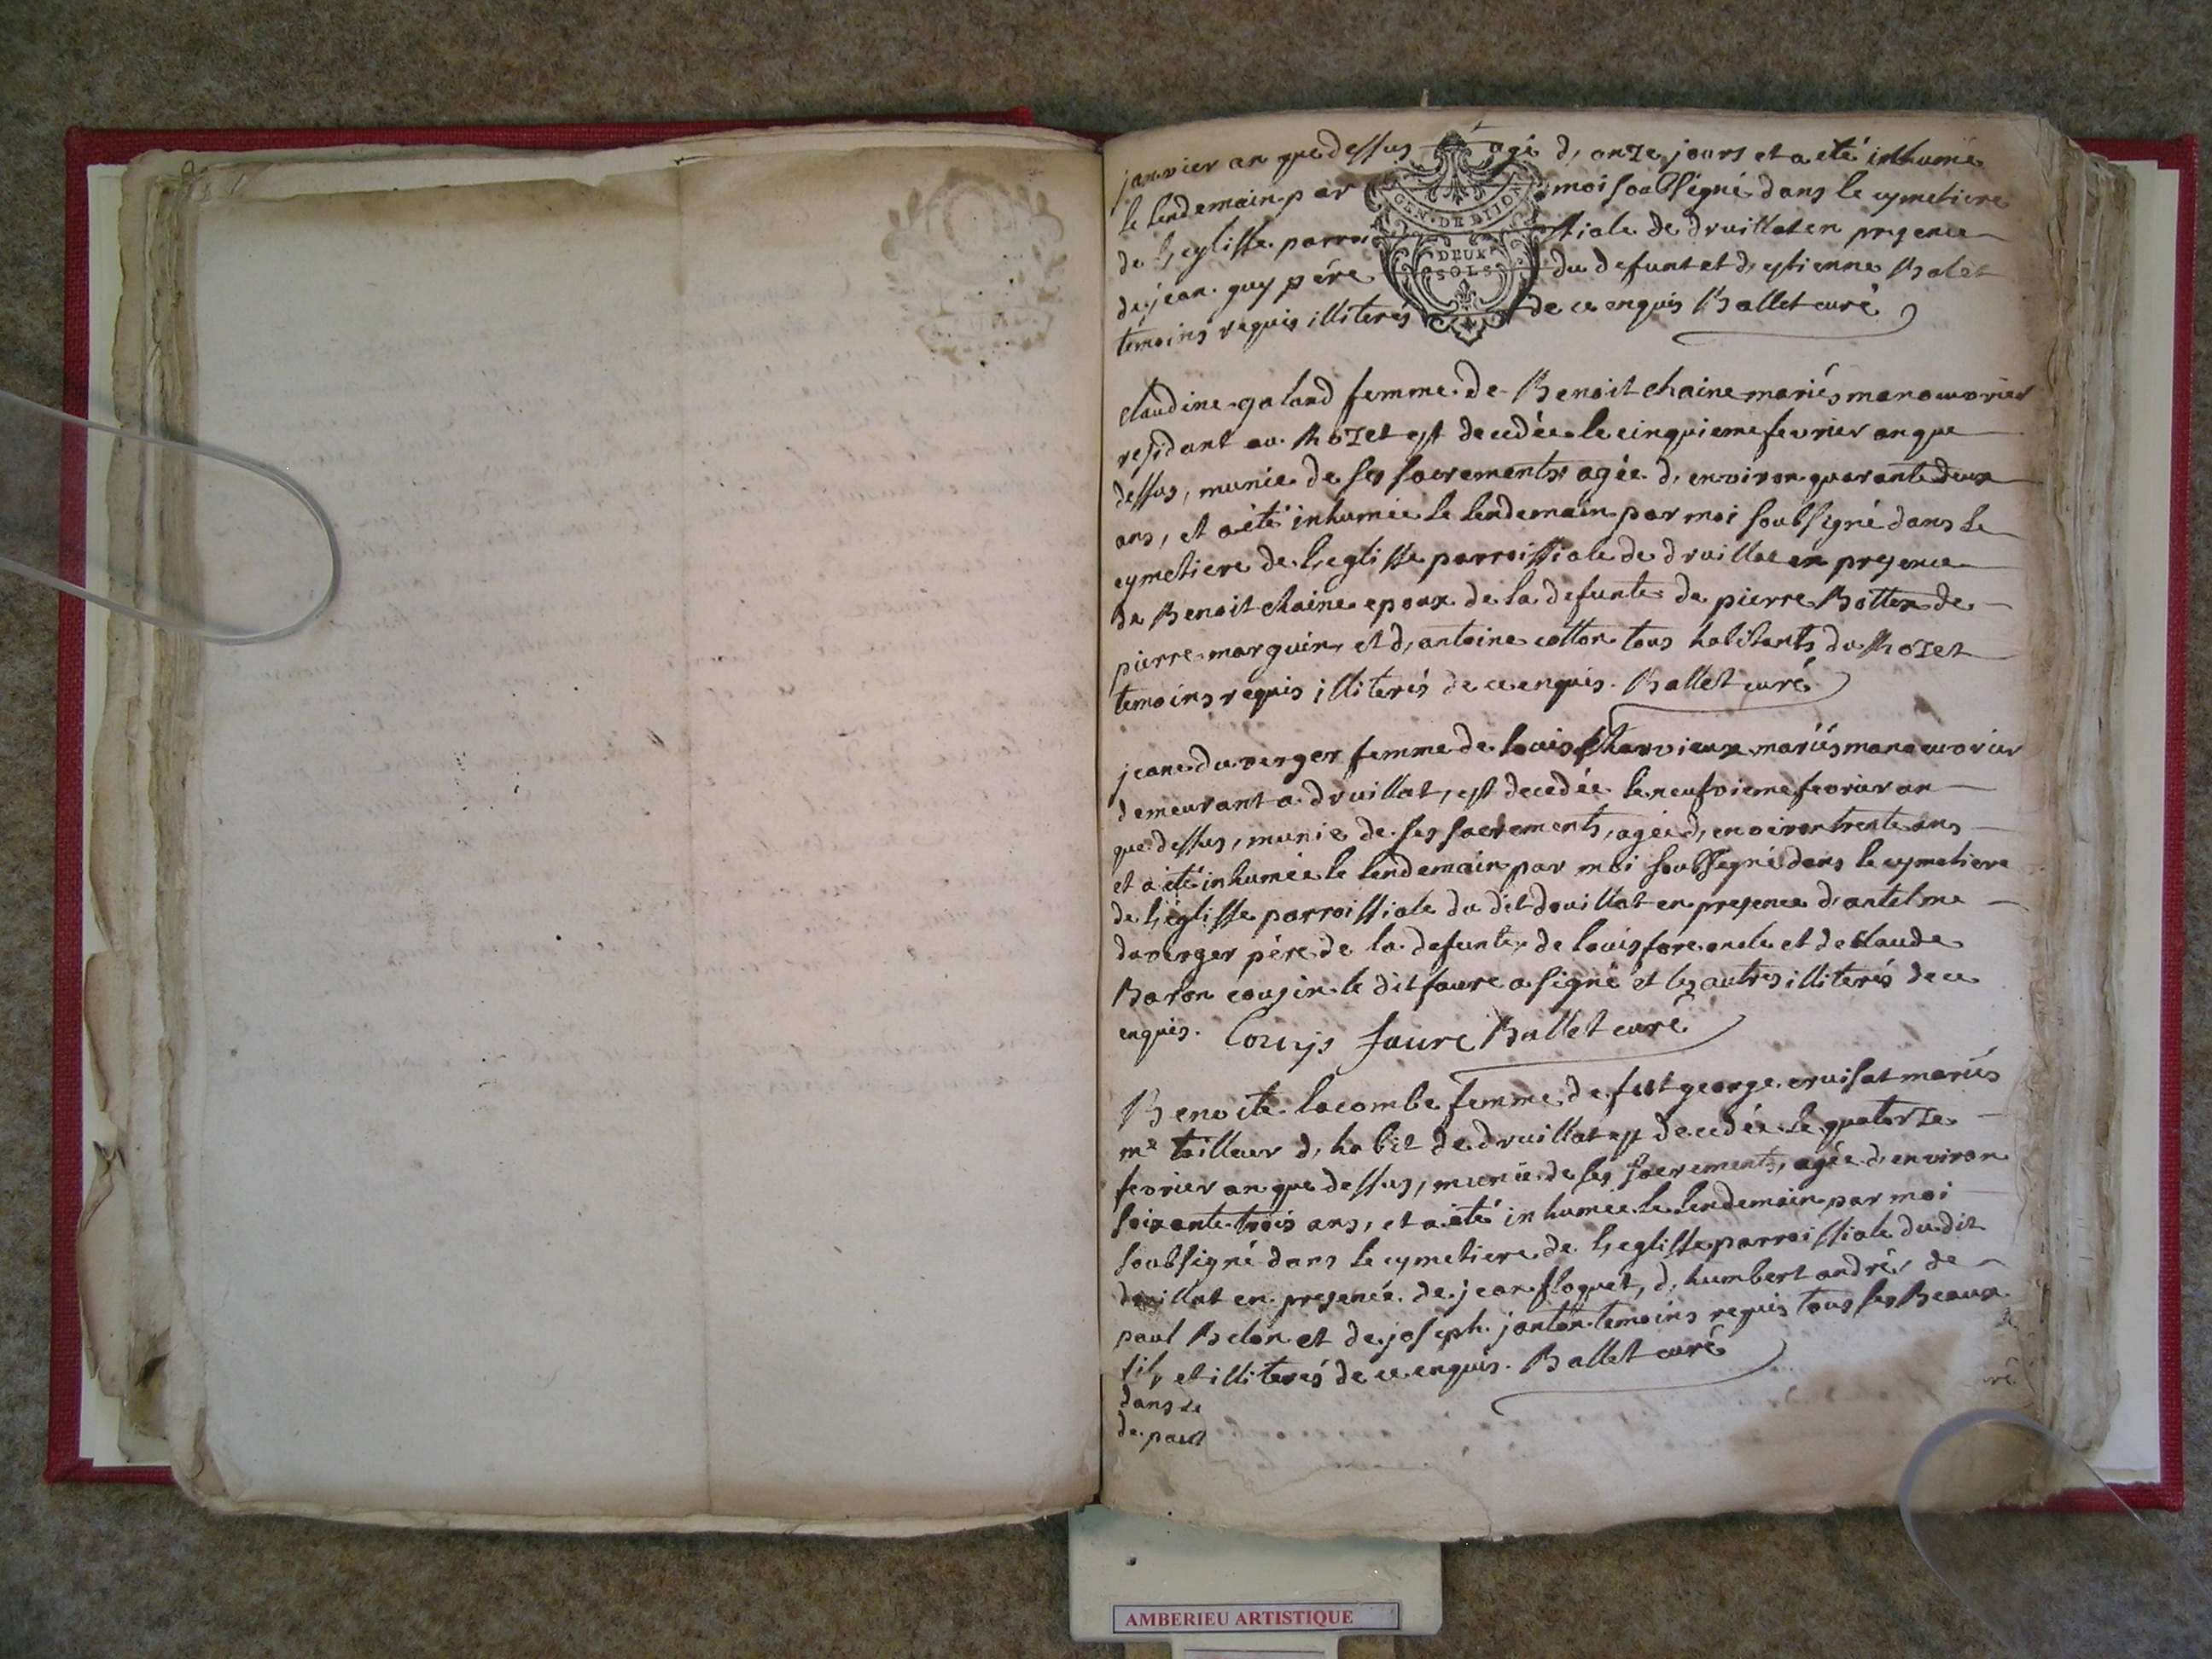 janvier an que dessus agé d, onze jours et a eté inhumé
le lendemain par moi soubsigné dans le cymetiere
de l,eglisse parroissiale de druillat en presence
de jean guy pére du defunt et d, estienne Balet
témoins requis illiterés de ce enquis Ballet curé
GEN. DE DIJON
DEUX
SOLS
claudine galand femme de Benoit chaine mariés manouvrier
residant au Rozet est decedée le cinquieme fevrier an que
dessus, munie de ses sacrements agée d, environ quarante deux
ans, et a eté inhumée le lendemain par moi soubsigné dans le
cymetiere de l,eglisse parroissiale de druillat en presence
de Benoit chaine epoux de la defunte de pierre Bottex de
pierre marguin, et d, antoine cotton tous habitants du Rozet
temoins requis illiterés de ce enquis. Ballet curé
jeane duverger femme de louis Charvieux mariés manouvrier
demeurant a druillat, est decedée le neufvieme fevrier an
que dessus, munie de ses sacrements, agée d, environ trente ans
et a eté inhumée le lendemain par moi soubsigné dans le cymetiere
de l,églisse parroissiale du dit douillat en presence d'antelme
duverger pére de la defunte, de louis fore oncle et de claude
Baron cousin le dit faure a signé et les autres illiterés de ce
enquis. Louijs faure Ballet curé
Benoite lacombe femme de fut george cruisat mariés
me tailleur d, habit de druillat est decedée le quatorze
fevrier an que dessus, munie de ses sacrements, agée d, environ
soixante trois ans, et a eté inhumée le lendemain par moi
soubsigné dans le cymetiere de l,eglisse parroissiale du dit
druillat en presence de jean floquet, d, humbert andré, de
paul Belon et de joseph janton temoins requis tous ses Beaux
fils, et illiterés de ce enquis. Ballet curé
dans le
de paul
AMBERIEU ARTISTIQUE